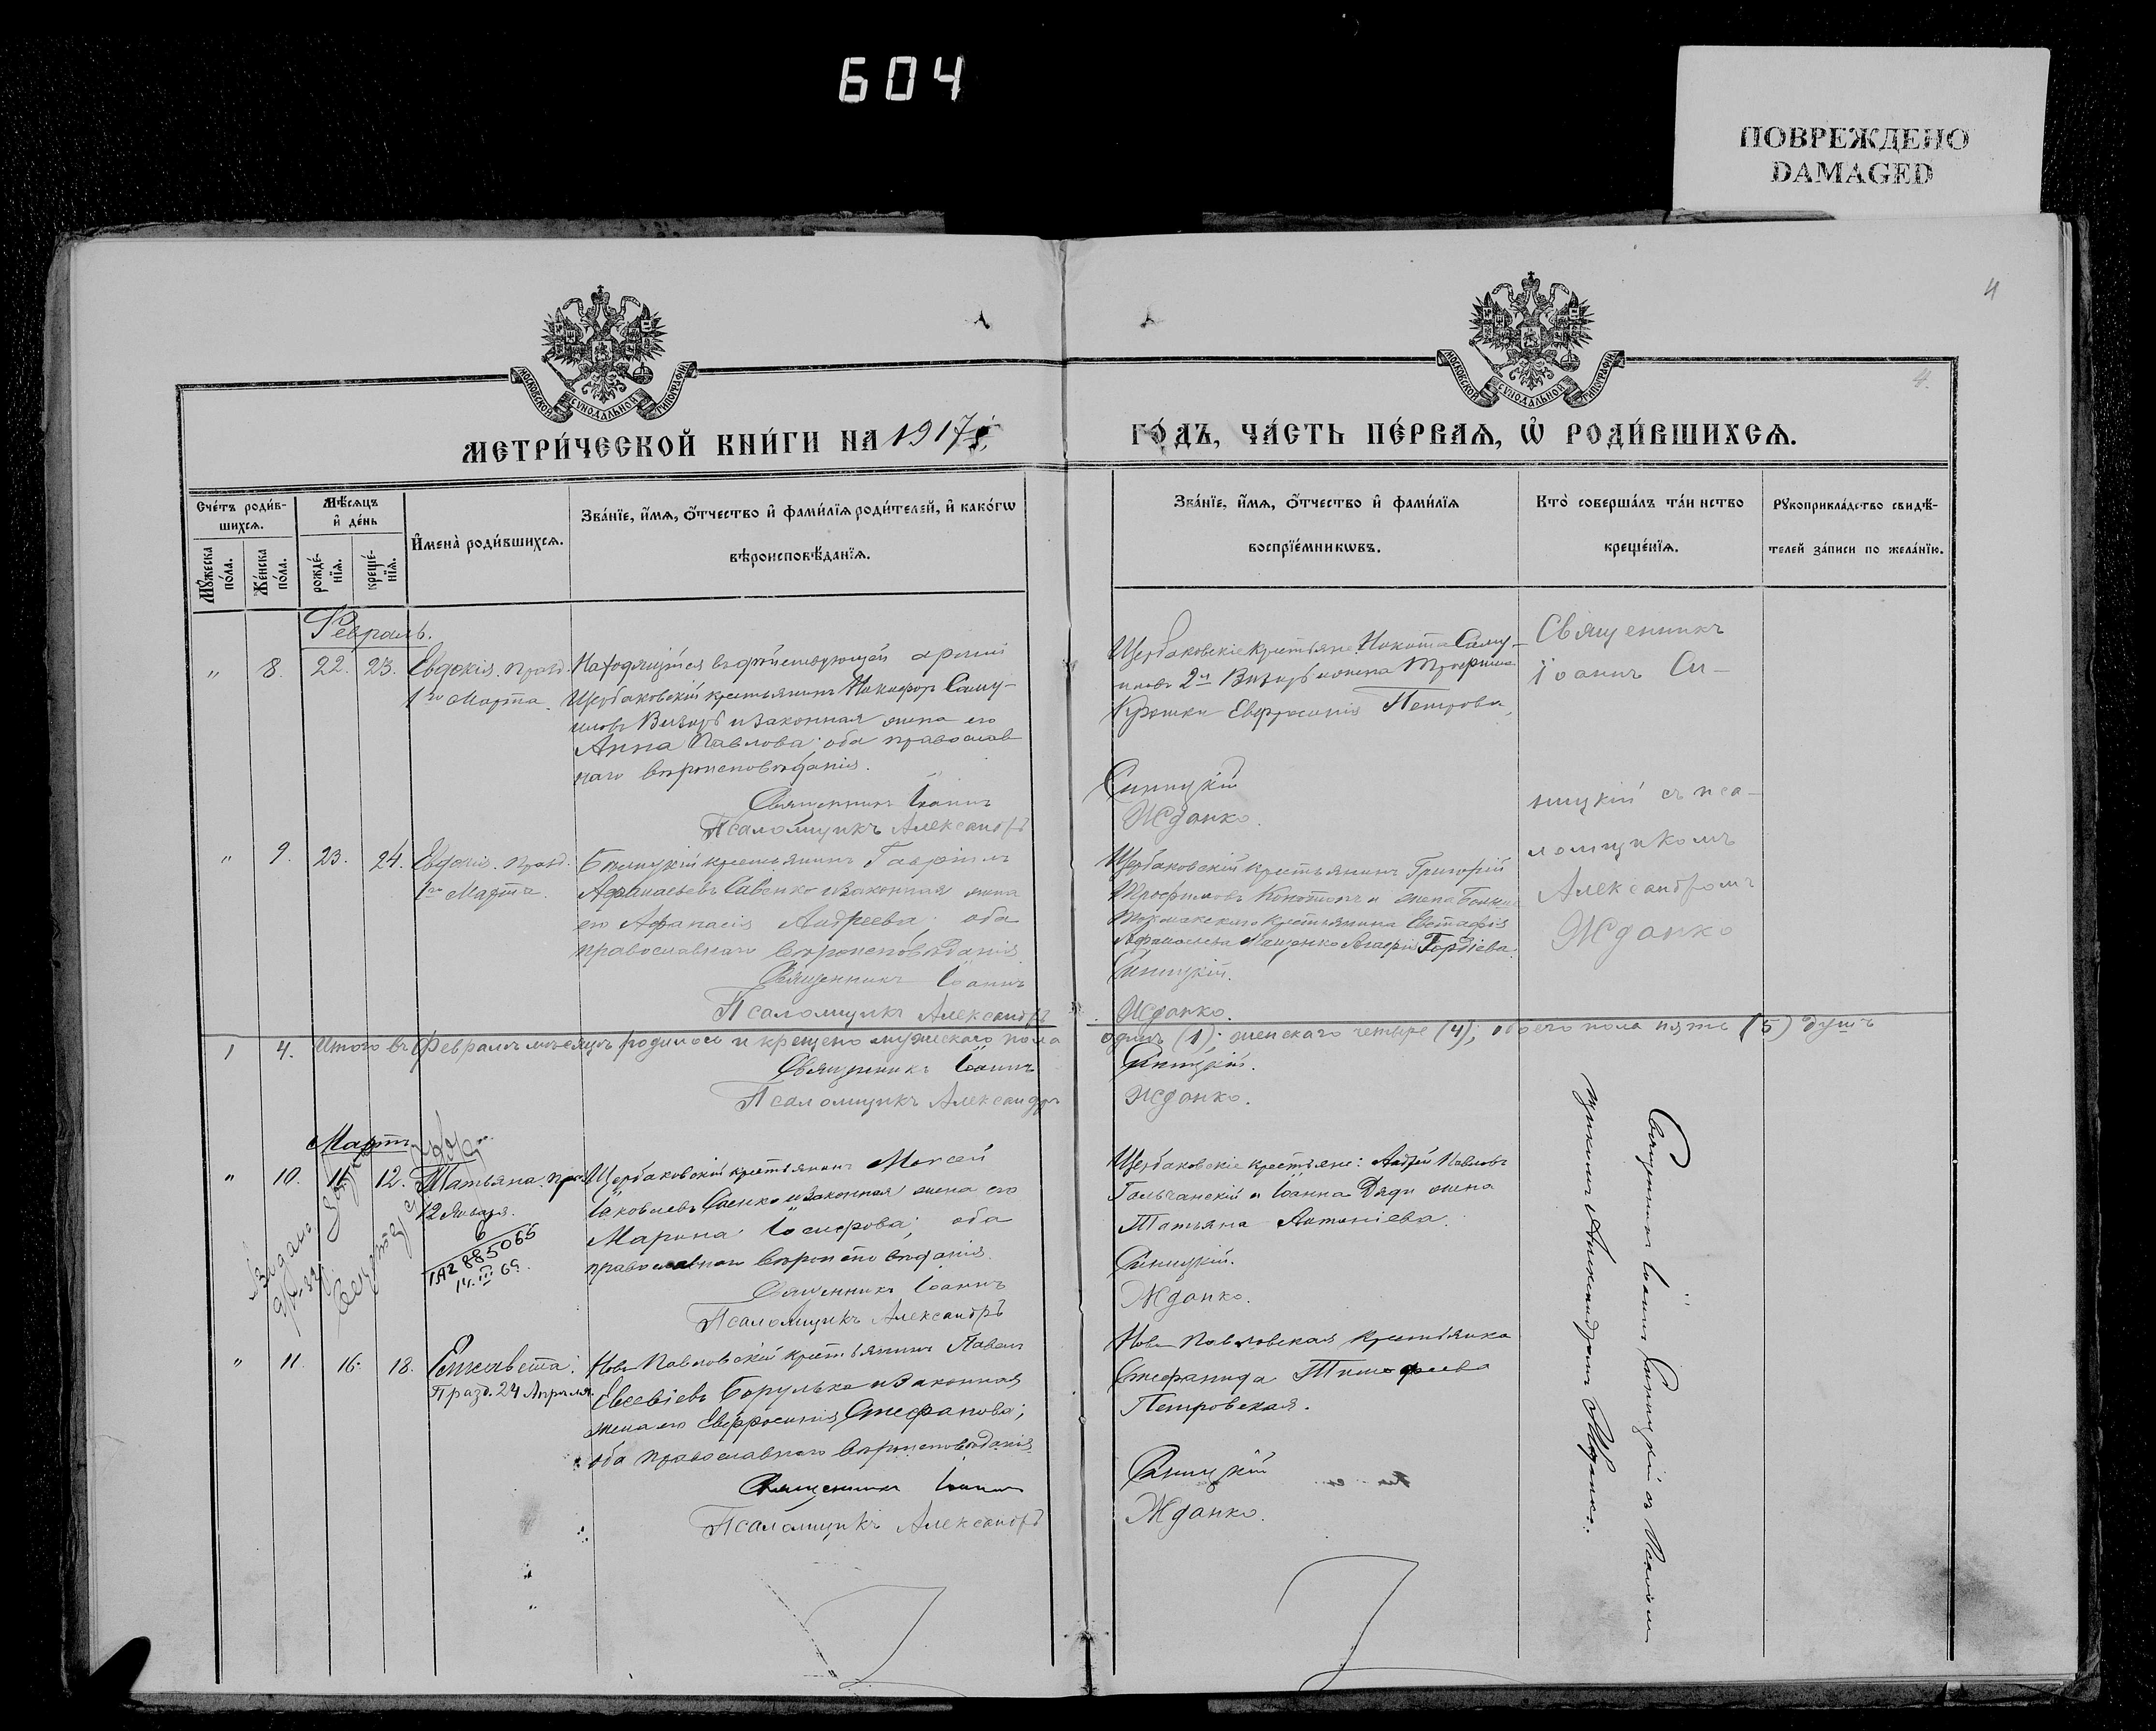 604
ПОВРЕЖДЕНО
DAMAGED
4
4.
МОСКОВСКОЙ СѴНОДАЛЬНОЙ ТИПОГРАФІИ
МОСКОВСКОЙ СѴНОДАЛЬНОЙ ТИПОГРАФІИ
МЕТРИ́ЧЕСКОЙ КНИ́ГИ НА 1917
ГО́ДЪ, ЧА́СТЬ ПЕ́РВАѦ, Ѡ҆ РОДИ́ВШИХСѦ.
Сче́тъ роди́в-
шихсѧ.
Мꙋ́жеска по́ла.
Же́нска по́ла.
Мѣ́сѧцъ
и҆ де́нь
рожде́-
нїѧ.
креще́-
нїѧ.
И҆мена̀ роди́вшихсѧ.
Зва́нїе, и҆́мѧ, ѻ҆́тчество и҆ фами́лїѧ роди́телей, и҆ како́гѡ
вѣроисповѣ́данїѧ.
Зва́нїе, и҆́мѧ, ѻ҆́тчество и҆ фами́лїѧ
воспрїе́мникѡвъ.
Кто̀ соверша́лъ та́инство
креще́нїѧ.
Рꙋкоприкла́дство свидѣ́-
телей за́писи по жела́нїю.
Февраль.
" 8. 22. 23. Евдокія. празд.
1го Марта.
Находящійся въ дѣйствующей арміи
Щербаковскій крестьянинъ Никифоръ Саму-
иловъ Визирь и законная жена его
Анна Павлова; оба православ
наго вѣроисповѣданія.
Священникъ Іоаннъ
Псаломщикъ Александръ
Щербаковскіе крестьяне: Никита Саму-
иловъ 2й Визирь и жена Трофима
Крошки Евфросинія Петрова.
Синицкій
Жданко.
Священникъ
Іоаннъ Си-
ницкій съ пса-
ломщикомъ
Александромъ
Жданко
" 9. 23. 24. Евдокія. празд.
1го Марта.
крестьянинъ Гавріилъ
Афанасьевъ Савенко и законная жена
его Афанасія Андреева; оба
православнаго вѣроисповѣданія.
Священникъ Іоаннъ
Псаломщикъ Александръ
Щербаковскій крестьянинъ Григорій
Трофимовъ Конотопъ и жена Больше
Токмакскаго крестьянина Евстафія
Афанасьева Мащенко Агафія Гордіева.
Синицкій.
Жданко.
1 4. Итого въ Февралѣ мѣсяцѣ родилось и крещено мужескаго пола
одинъ (1); женскаго четыре (4); обоего пола пять (5) душъ
Священникъ Іоаннъ
Псаломщикъ Александръ
Синицкій.
Жданко.
Мартъ.
" 10. 11. 12. Татьяна. праз.
12 Января.
6
1А2 885065
14. III 69.
Щербаковскій крестьянинъ Моисей
Іаковлевъ Саенко и законная жена его
Марина Іосифова; оба
православнаго вѣроисповѣданія.
Священникъ Іоаннъ
Псаломщикъ Александръ
Щербаковскіе крестьяне: Андрей Павловъ
Гольчанскій и Іоанна Дяди жена
Татьяна Антоніева.
Синицкій.
Жданко.
Священникъ Іоаннъ Синицкій съ Псалом
щикомъ Александромъ Жданко.
" 11. 16. 18. Елисавета.
Празд. 24 Апрѣля.
Ново Павловскій крестьянинъ Павелъ
Евсевіевъ Борулько и законная
жена его Евфросинія Стефанова;
оба православнаго вѣроисповѣданія.
Священникъ Іоаннъ
Псаломщикъ Александръ
Ново Павловская крестьянка
Стефанида Тимофеева
Петровская.
Синицкій
Жданко.